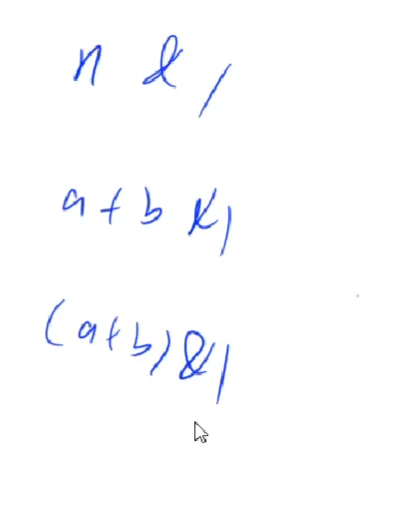 n & 1
a + b & 1
(a+b) & 1